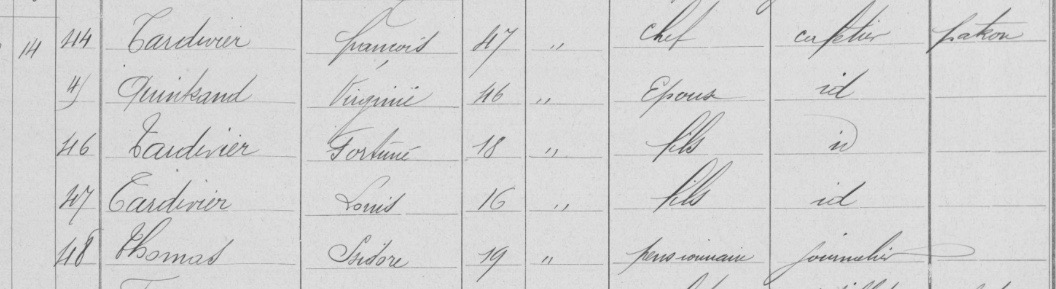 14 44 Tardivier François 47 " Chef cafetier patron
45 Quinkand Virginie 46 " Epous id
46 Tardivier Fortuné 18 " fils id
47 Tardivier Louis 16 " fils id
48 Thomas Isidore 19 " pensionnaire journalier